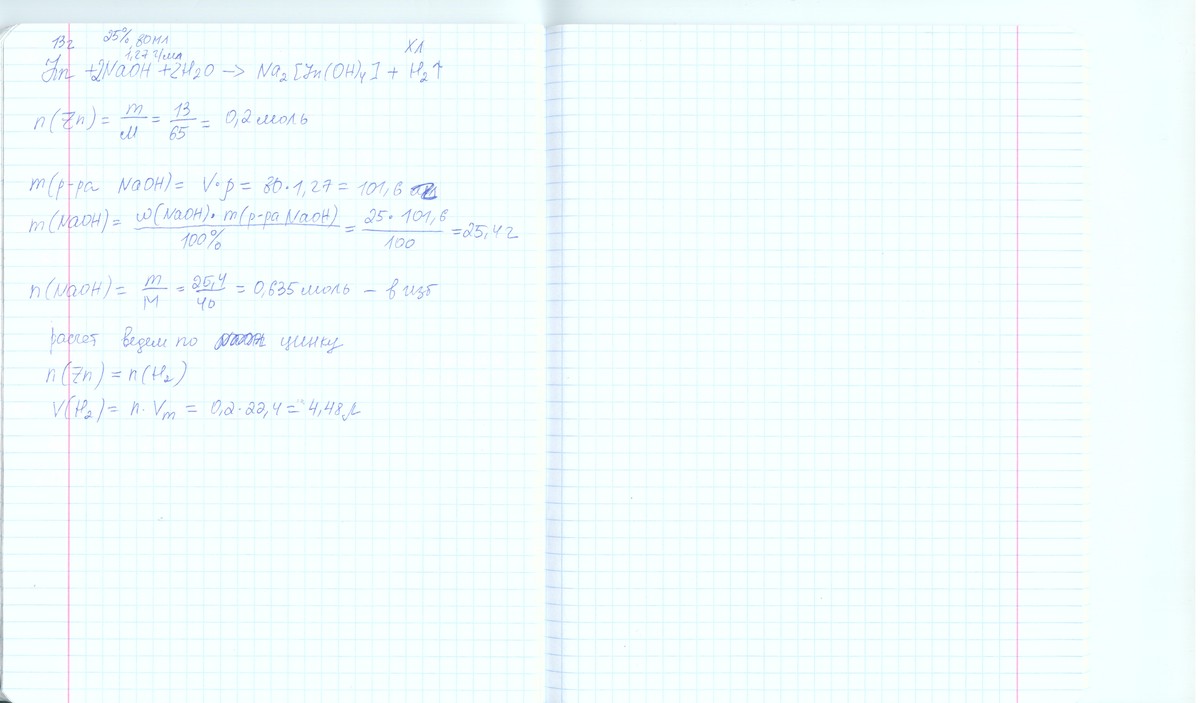 13г 25% 80мл
1,27 г/мл Хл
Zn + 2NaOH + 2H₂O → Na₂[Zn(OH)₄] + H₂↑
n(Zn) = m/M = 13/65 = 0,2 моль
m(р-ра NaOH) = V·ρ = 80·1,27 = 101,6
m(NaOH) = ω(NaOH)·m(р-ра NaOH)/100% = 25·101,6/100 = 25,4 г
n(NaOH) = m/M = 25,4/40 = 0,635 моль – в изб
расчет ведем по цинку
n(Zn) = n(H₂)
V(H₂) = n·Vm = 0,2·22,4 = 4,48 л